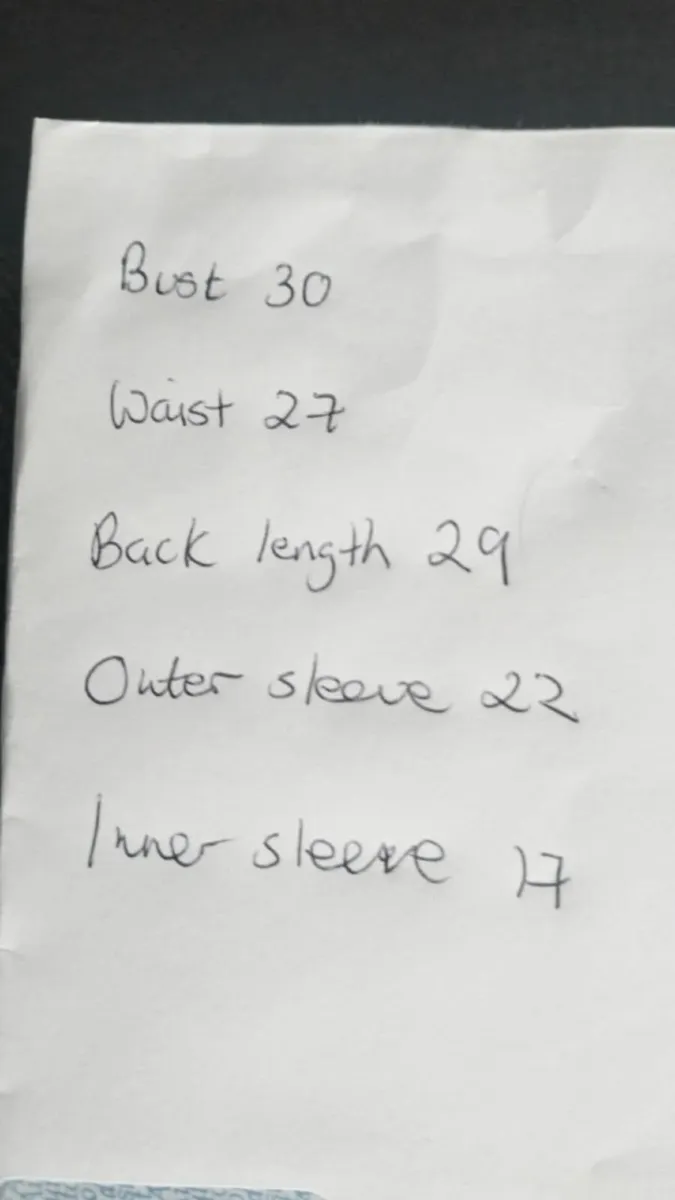 Bust 30
Waist 27
Back length 29
Outer sleeve 22
Inner sleeve 17